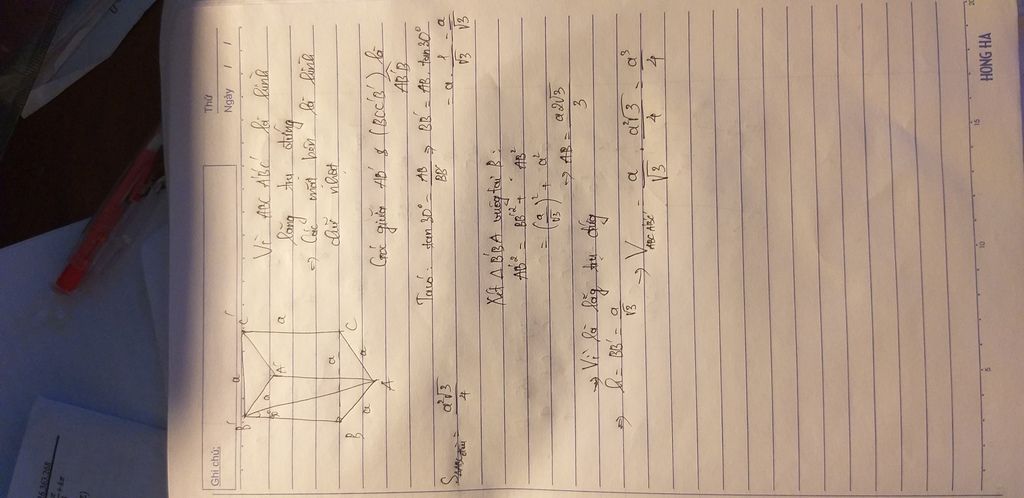 Thứ
Ngày / /
Ghi chú:
B' a C'
a A' a
30°
a
B C
a a
A
Vì ABC A'B'C' là hình
lăng trụ đứng
⇒ Các mặt bên là hình
chữ nhật
Góc giữa AB' & (BCC'B') là
AB'B
Ta có: tan30° = AB/BB' ⇒ BB' = AB. tan30°
= a. 1/√3 = a/√3
S△ABC đều = a²√3/4
Xét △B'BA vuông tại B:
AB'² = BB'² + AB²
= (a/√3)² + a²
⇒ AB' = a2√3/3
⇒ Vì là lăng trụ đứng
⇒ h = BB' = a/√3
⇒ V ABC A'B'C' = a/√3 . a²√3/4 = a³/4
HONG HA
5 10 15 20